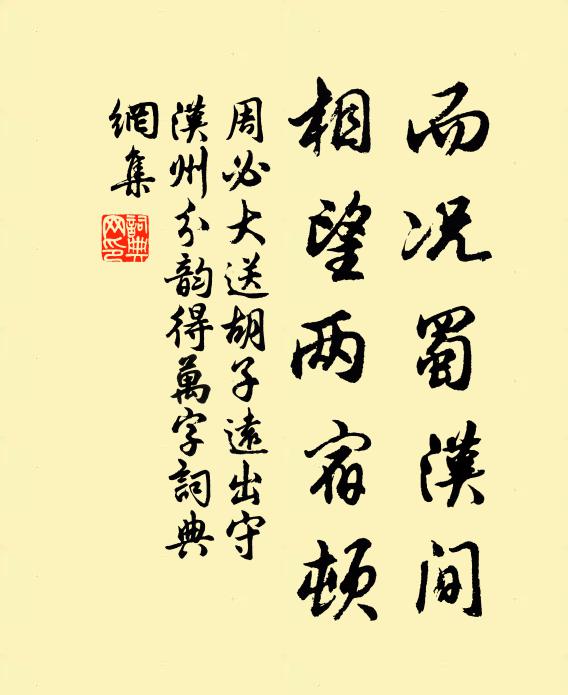 而况蜀漢间
相望两宿頓
周必大送胡子遠出守
漢州分韵得萬字詞典
網集
詞典
网印